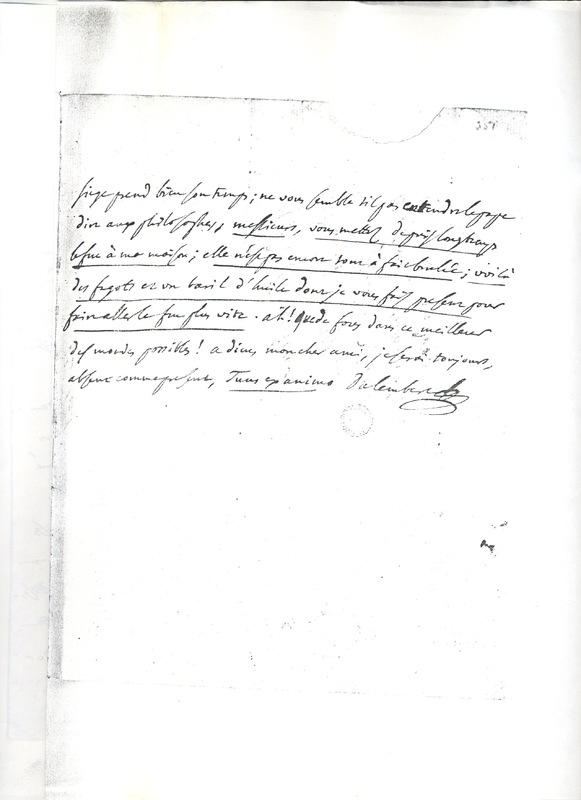 351
siege prend bien son temps; ne vous semble t'il pas entendre le pape
dire aux philosophes, messieurs, vous mettez depuis longtemps
le feu à ma maison; elle n'est pas encore tout à fait brulée; voilà
des fagots et un baril d'huile dont je vous fais present pour
faire aller le feu plus vite. ah! que de fous dans ce meilleur
des mondes possibles! adieu mon cher ami, je serai toujours,
absent comme present, Tuus ex animo Dalembert